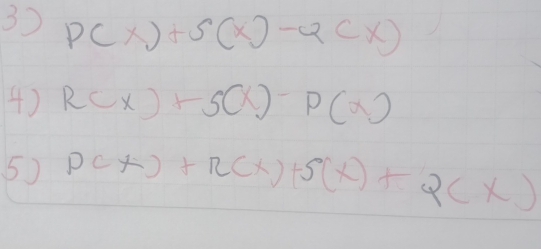 3) P(x)+S(x)-Q(x)
4) R(x)+S(x)-P(x)
5) P(x)+R(x)+S(x)+Q(x)